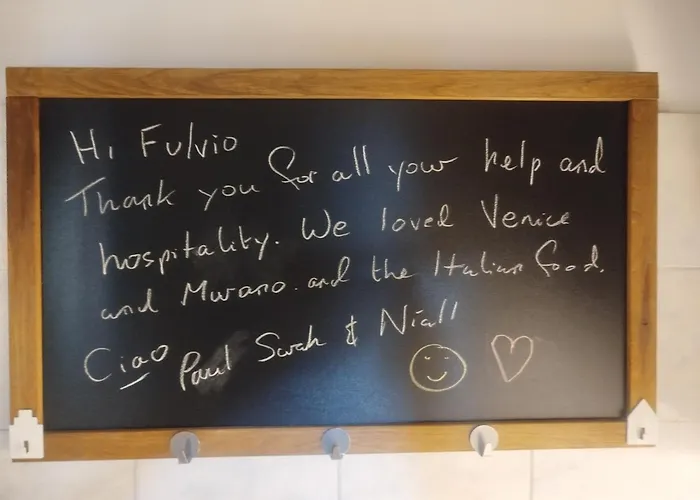 Hi Fulvio
Thank you for all your help and
hospitality. We loved Venice
and Murano. and the Italian food.
Ciao Paul Sarah & Niall